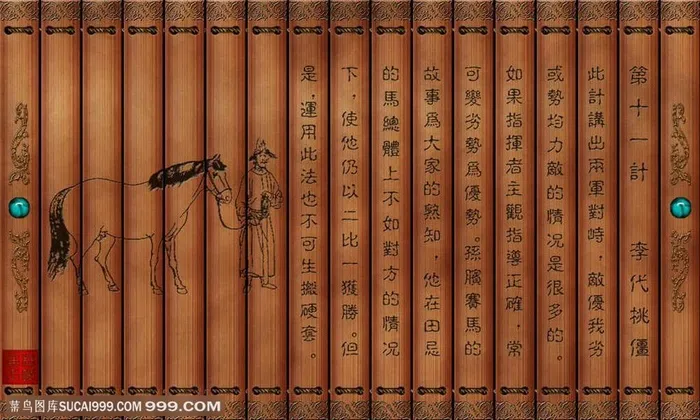 第十一計 李代桃僵
此計講出兩軍對峙，敵優我劣
或勢均力敵的情况是很多的。
如果指揮者主觀指導正確，常
可變劣勢爲優勢。孫臏賽馬的
故事爲大家的熟知，他在田忌
的馬總體上不如對方的情况
下，使他仍以二比一獲勝。但
是，運用此法也不可生搬硬套。
菜鸟图库SUCAI999.COM 999.COM